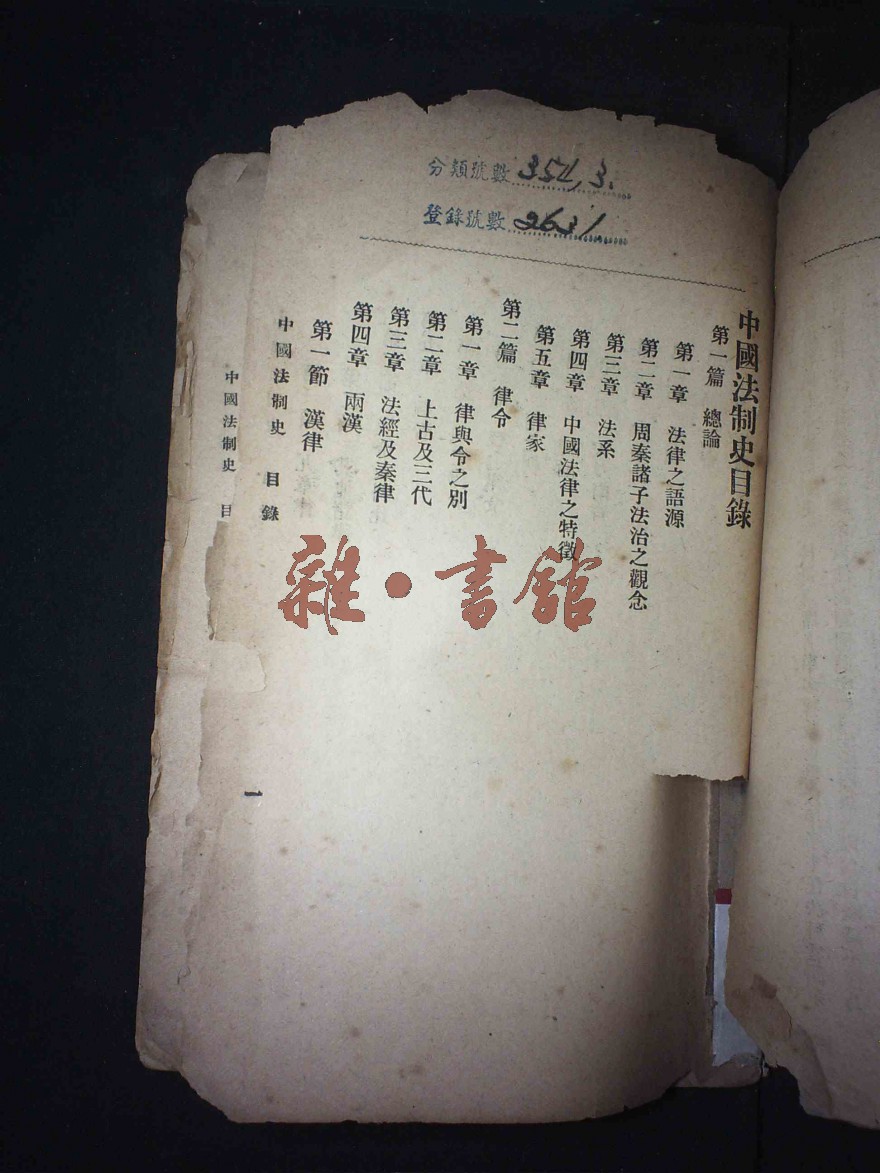 分類號數 354.3.
登錄號數 2631
中國法制史目錄
第一篇 總論
第一章 法律之語源
第二章 周秦諸子法治之觀念
第三章 法系
第四章 中國法律之特徵
第五章 律家
第二篇 律令
第一章 律與令之別
第二章 上古及三代
第三章 法經及秦律
第四章 兩漢
第一節 漢律
中國法制史 目錄
一
中國法制史 目
雜·書館